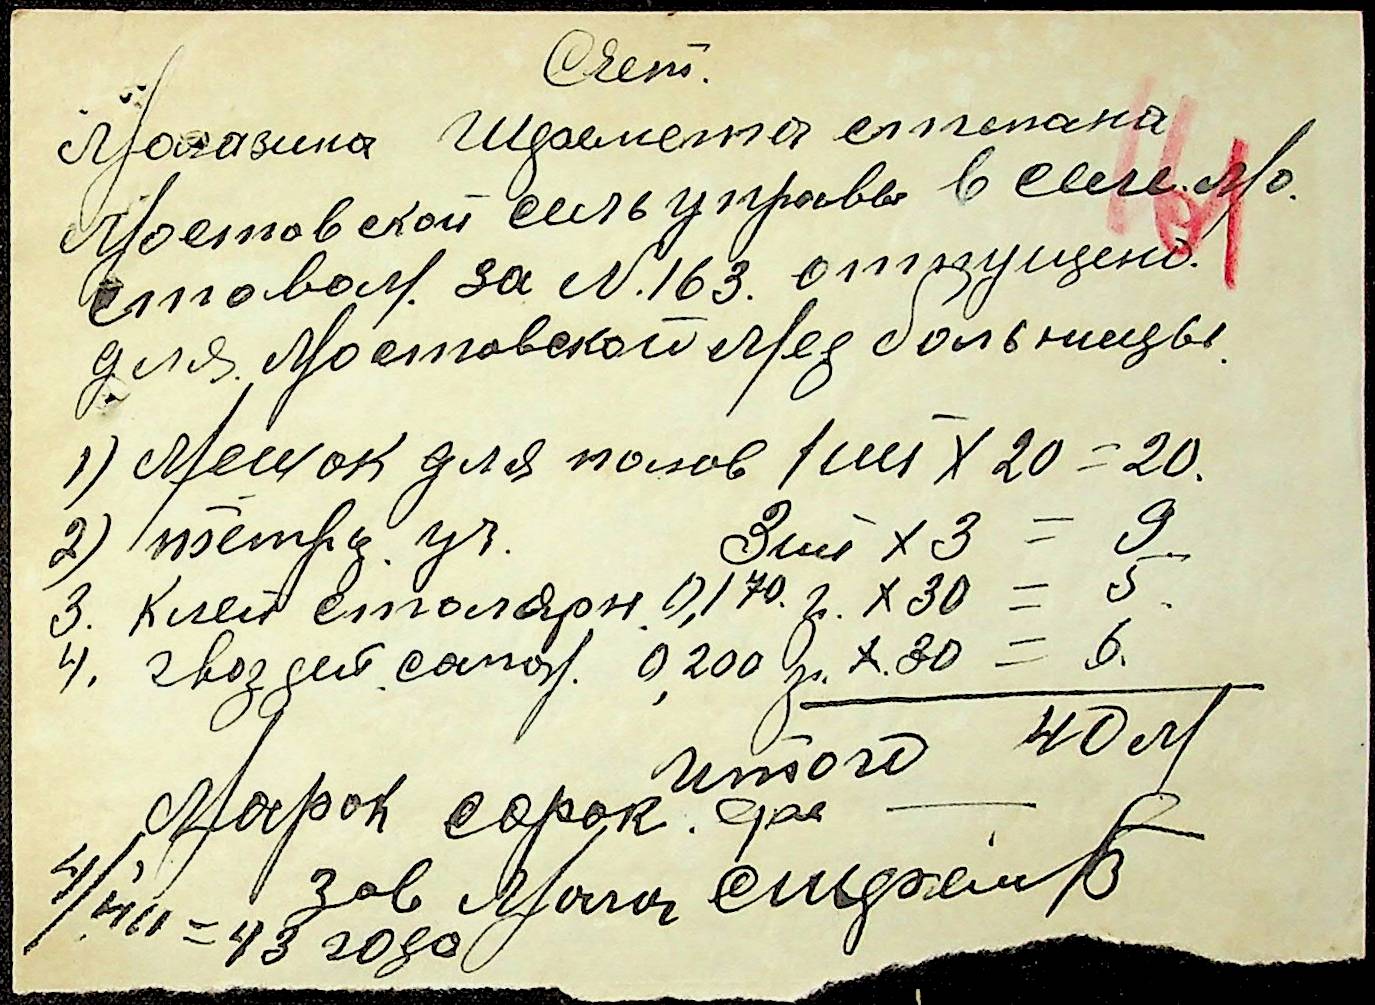 Счет.
Магазина Шеремета степана
Мостовской сельуправы в селе. Мо.
стовом. за N.163. отпущено.
для Мостовской Мед больницы.
1) Мешок для полов 1шт X 20 = 20.
2) тетрд. уч. 3шт x 3 = 9.
3. клей столярн. 0,170. г. x 30 = 5.
4. гвоздей. сапож. 0,200 г. x. 30 = 6.
итого 40 М
Марок сорок.
зав Мага
4/ = 43 года